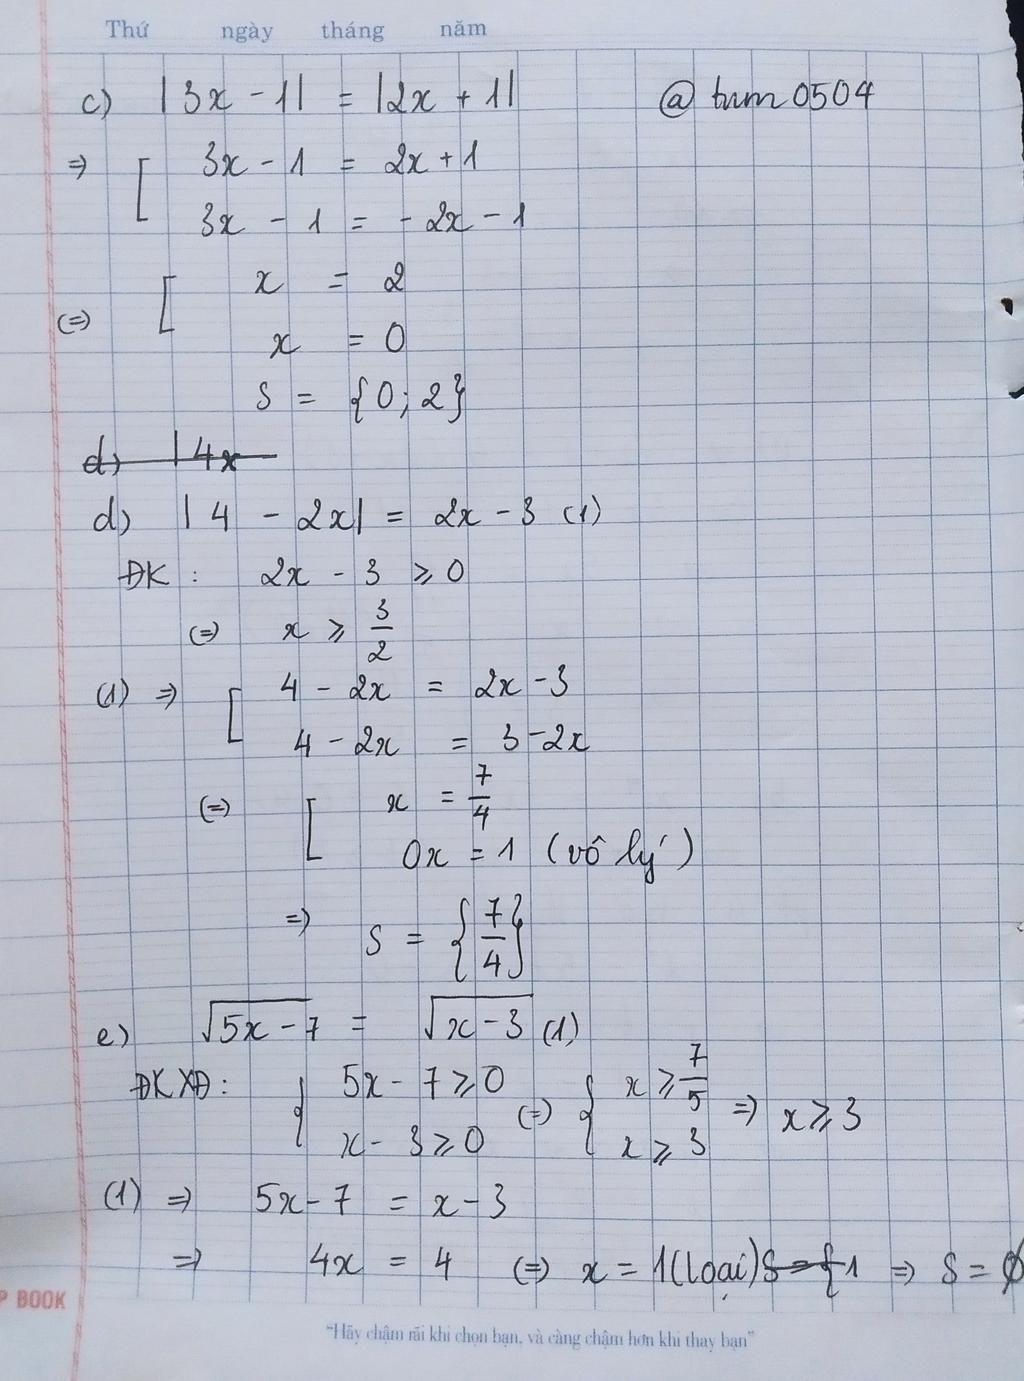 Thứ ngày tháng năm
c) |3x - 1| = |2x + 1| @ tnm0504
=> [ 3x - 1 = 2x + 1
3x - 1 = - 2x - 1
(=) [ x = 2
x = 0
S = {0; 2}
d) |4x
d) |4 - 2x| = 2x - 3 (1)
ĐK : 2x - 3 ⩾ 0
(=) x ⩾ 3/2
(1) => [ 4 - 2x = 2x - 3
4 - 2x = 3 - 2x
(=) [ x = 7/4
0x = 1 (vô lý)
=> S = {7/4}
e) √5x - 7 = √x - 3 (1)
ĐKXĐ: { 5x - 7 ⩾ 0 (=) { x ⩾ 7/5 => x ⩾ 3
x - 3 ⩾ 0 x ⩾ 3
(1) => 5x - 7 = x - 3
=> 4x = 4 (=) x = 1 (loại) S = {1 => S = ∅
P BOOK
"Hãy chậm rãi khi chọn bạn, và càng chậm hơn khi thay bạn"